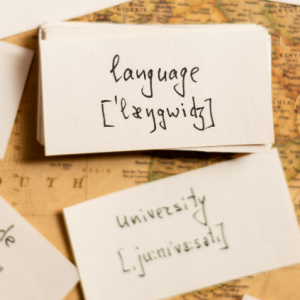 language
['læŋgwidʒ]
university
[,ju:nivɜ:səti]
SOUTH